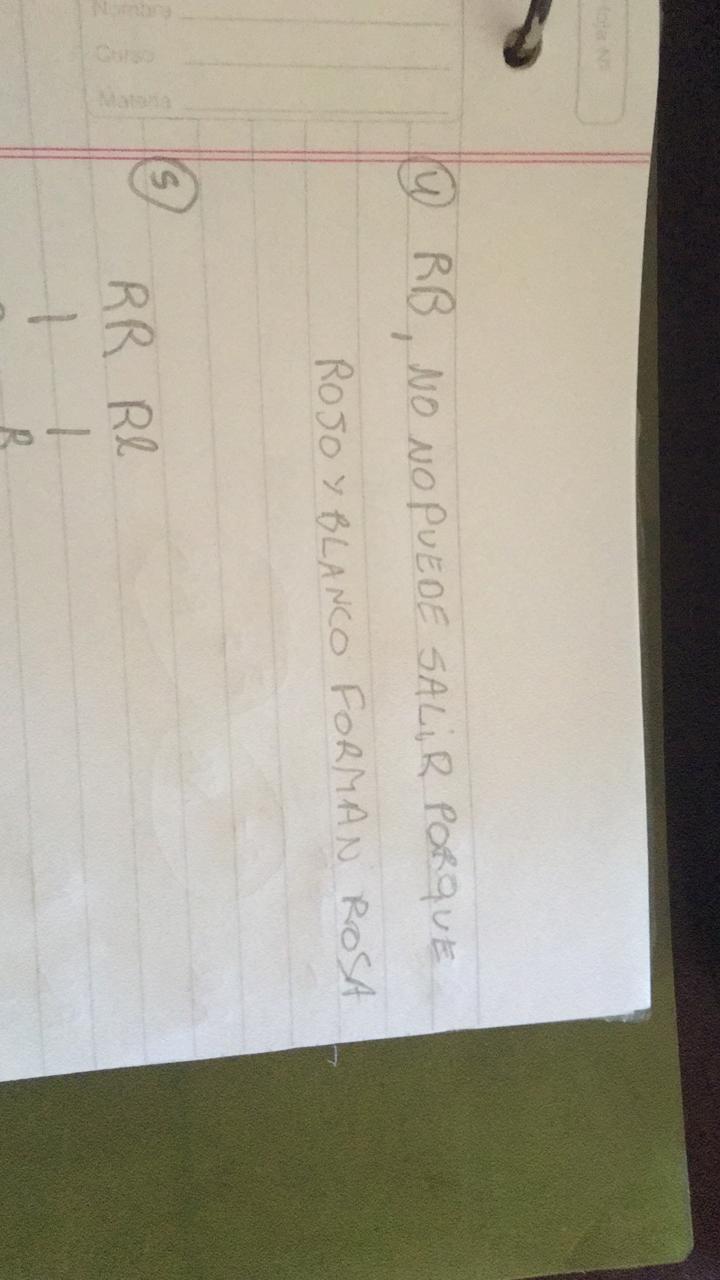 Hoja Nº
Nombre
Curso
Materia
④ RB, NO NO PUEDE SALiR PORQUE
ROJO Y BLANCO FORMAN ROSA
⑤
RR Rl